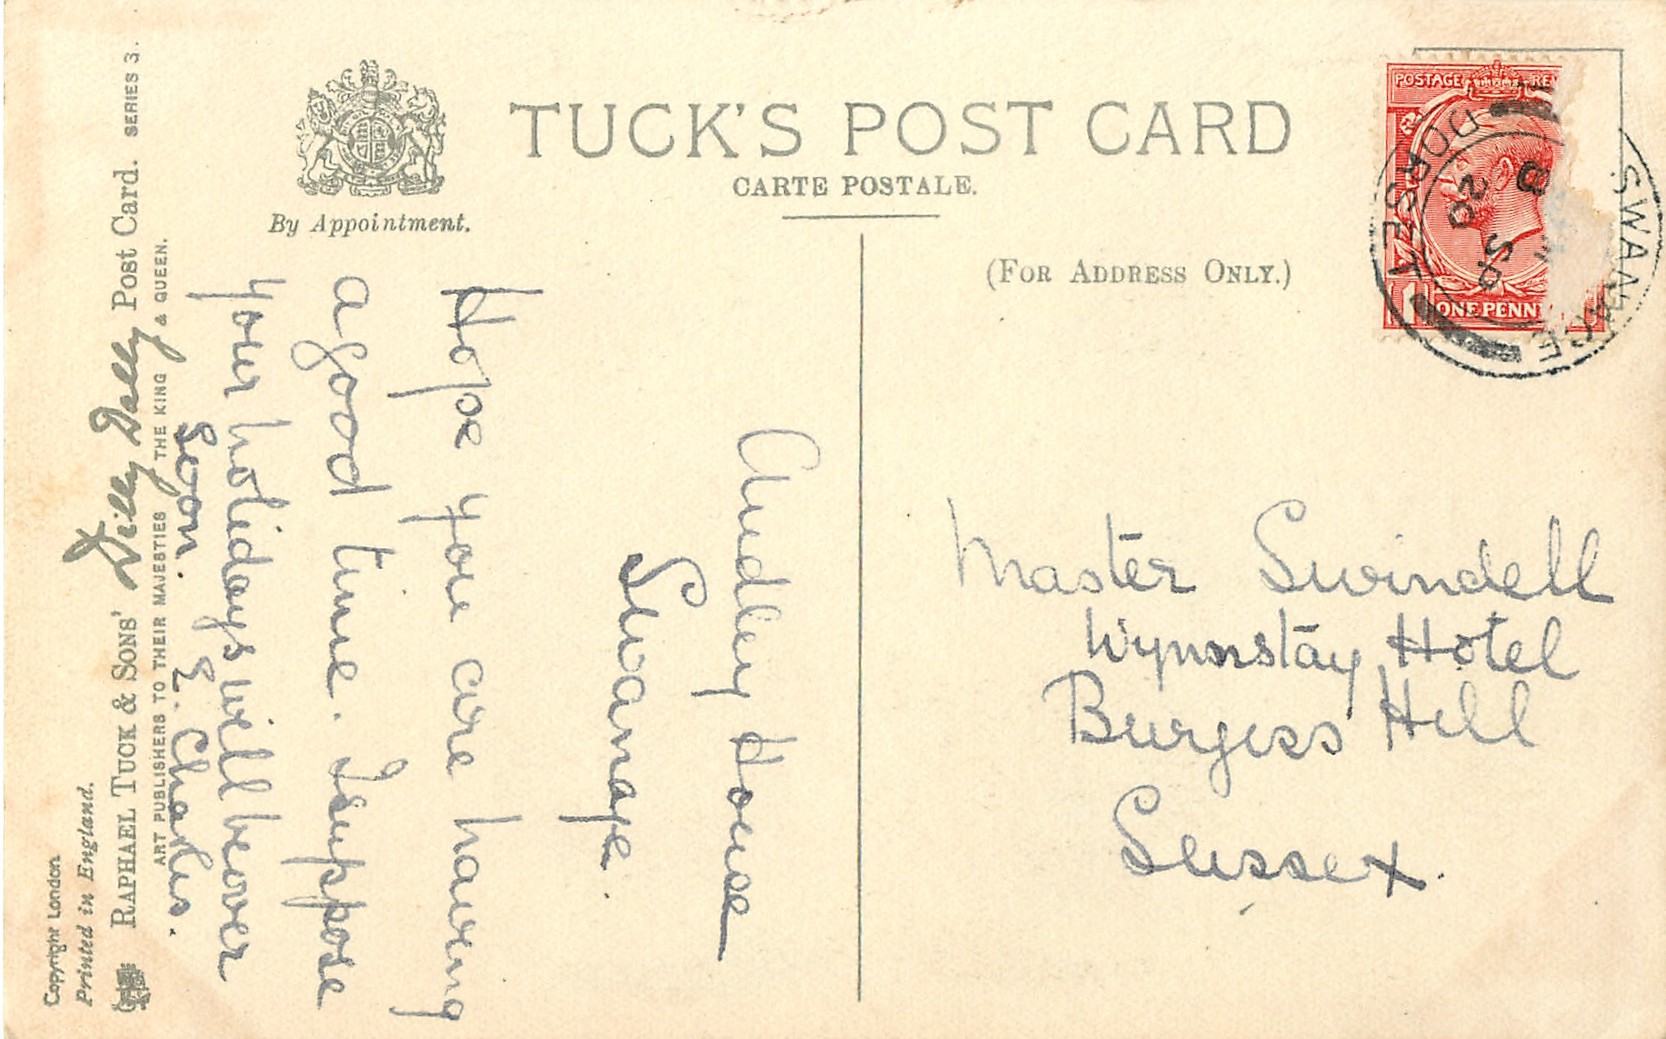 TUCK'S POST CARD
CARTE POSTALE.
By Appointment.
(FOR ADDRESS ONLY.)
POSTAGE RE
ONE PENN
SWANAGE
DORSET
20 SP
Master Swindell
Wynnstay Hotel
Burgess Hill
Sussex.
Audley House
Swanage.
Hope you are having
a good time. I suppose
your holidays will be over
soon. E. Charlis.
Copyright London.
Printed in England.
RAPHAEL TUCK & SONS' Dilly Dally Post Card. SERIES 3.
ART PUBLISHERS TO THEIR MAJESTIES THE KING & QUEEN.